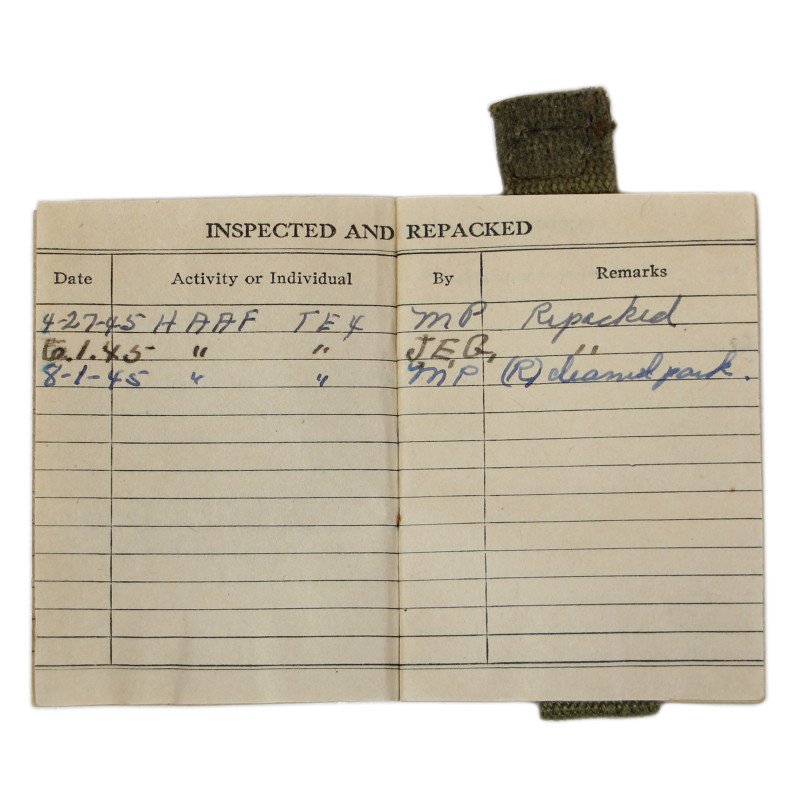 INSPECTED AND REPACKED
Date Activity or Individual By Remarks
4-27-45 H AAF TEX MP Repacked
6.1.45 " " J.E.G. "
8-1-45 " " MP (R) cleaned pack.